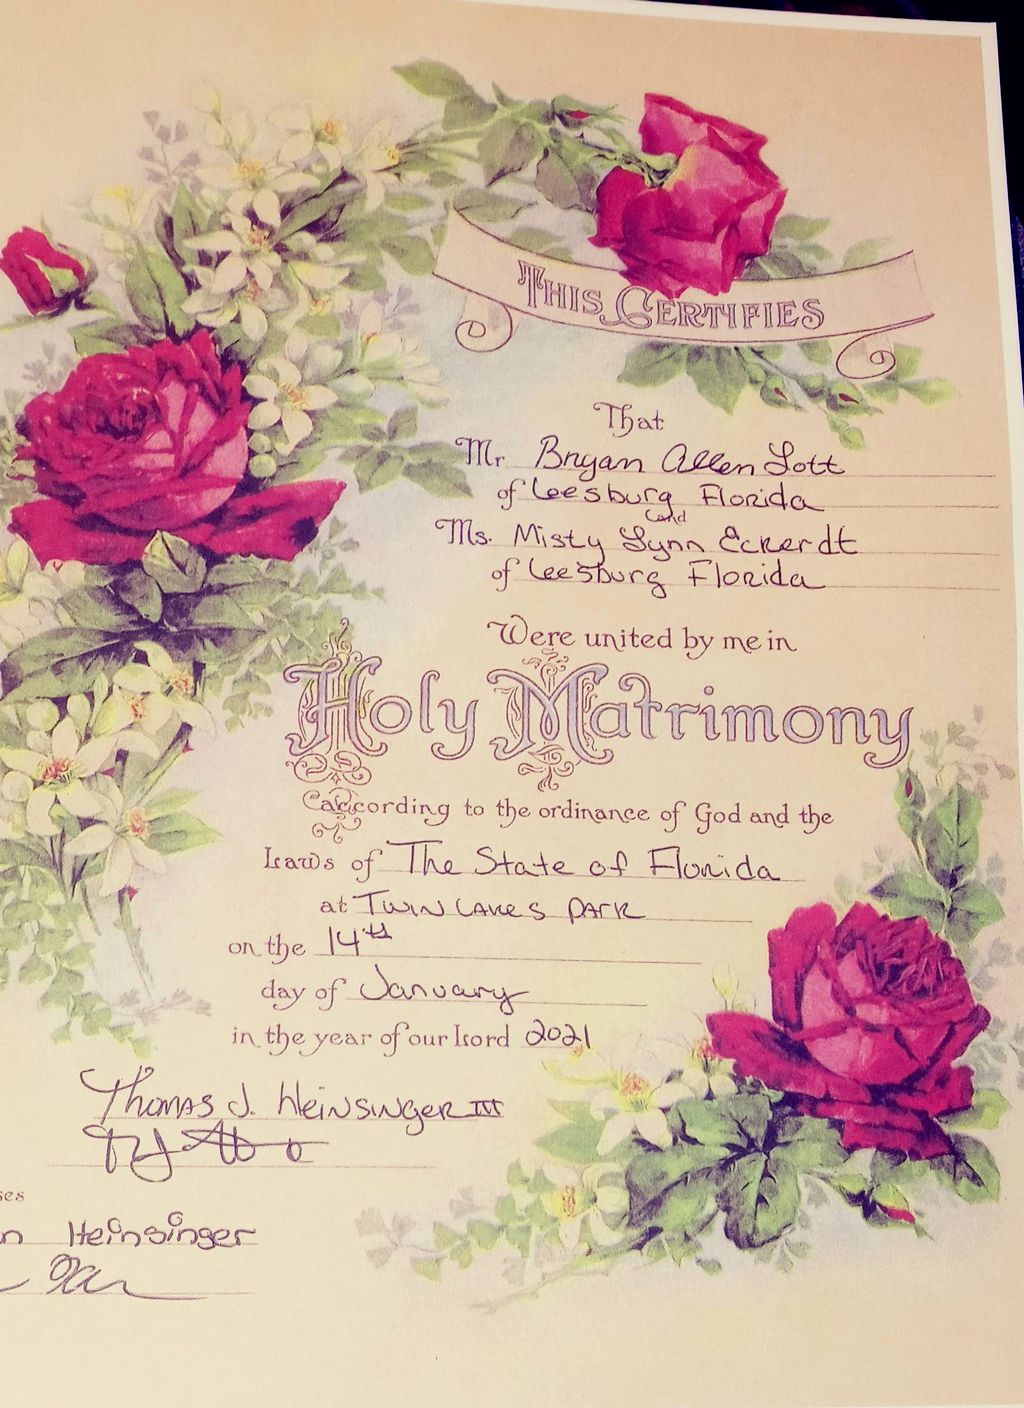 THIS CERTIFIES
That
Mr Bryan Allen Lott
of Leesburg Florida
and
Ms. Misty Lynn Eckerdt
of Leesburg Florida
Were united by me in
Holy Matrimony
according to the ordinance of God and the
Laws of The State of Florida
at Twin Lakes Park
on the 14th
day of January
in the year of our Lord 2021
Thomas J. Heinsinger III
Heinsinger